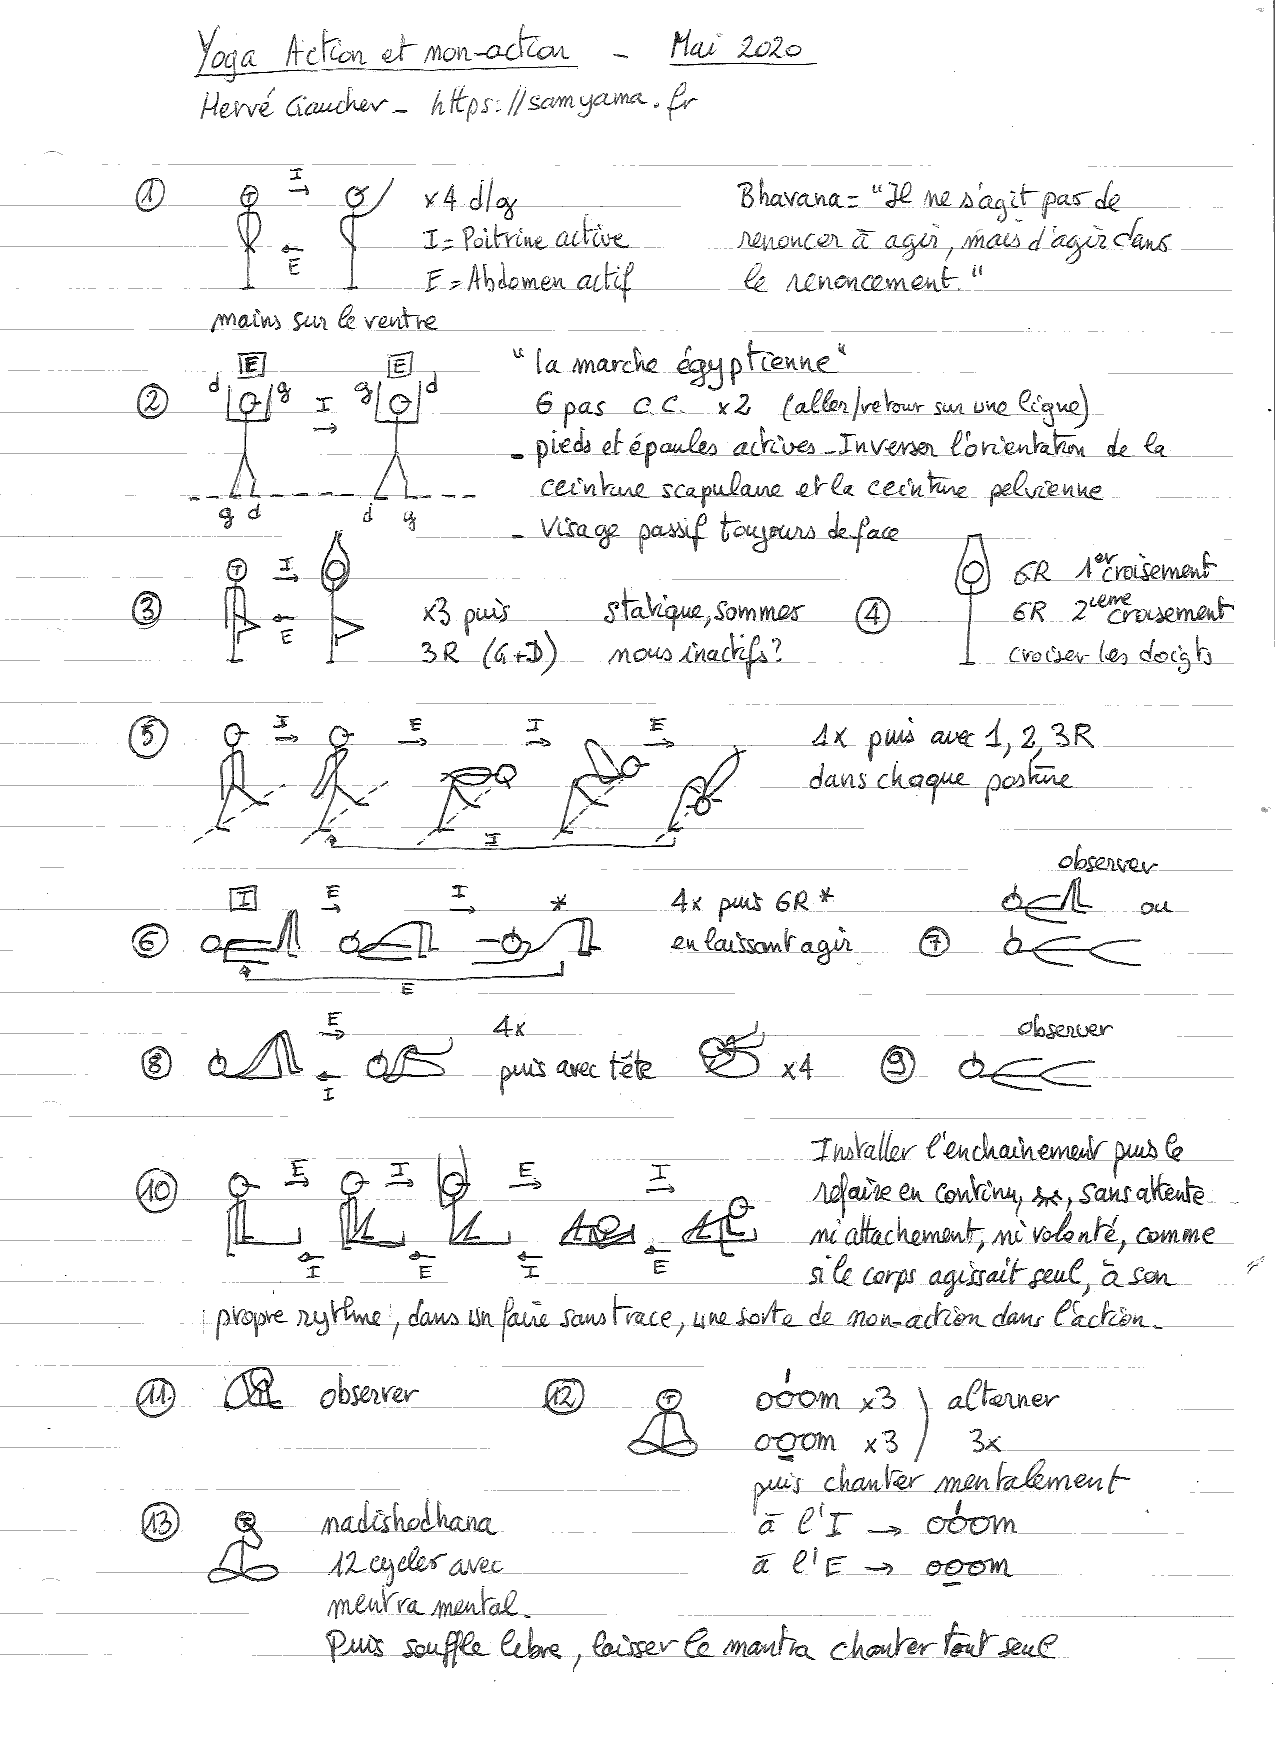 Yoga Action et non-action - Mai 2020
Hervé Gaucher - https://samyama.fr
① I E x4 d/g
I = Poitrine active
E = Abdomen actif
mains sur le ventre
Bhavana = "Il ne s'agit pas de
renoncer à agir, mais d'agir dans
le renoncement."
② E E
d g I g d
g d d g
"la marche égyptienne"
6 pas C.C. x2 (aller/retour sur une ligne)
- pieds et épaules actives - Inverser l'orientation de la
ceinture scapulaire et la ceinture pelvienne
- Visage passif toujours de face
③ I E x3 puis
3R (G+D)
statique, sommes
nous inactifs?
④ 6R 1er croisement
6R 2ieme croisement
croiser les doigts
⑤ I E I E
I
1x puis avec 1, 2, 3R
dans chaque posture
⑥ I E I *
E
4x puis 6R *
en laissant agir
⑦ observer
ou
⑧ E I 4x
puis avec tête x4
⑨ observer
⑩ E I E I
I E I E
Installer l'enchainement puis le
refaire en continu, sans attente
ni attachement, ni volonté, comme
si le corps agissait seul, à son
propre rythme, dans un faire sans trace, une sorte de non-action dans l'action.
⑪ observer
⑫ oóom x3 ) alterner
ooom x3 ) 3x
puis chanter mentalement
à l'I → oóom
à l'E → ooom
⑬ nadishodhana
12 cycles avec
mentra mental.
Puis souffle libre, laisser le mantra chanter tout seul